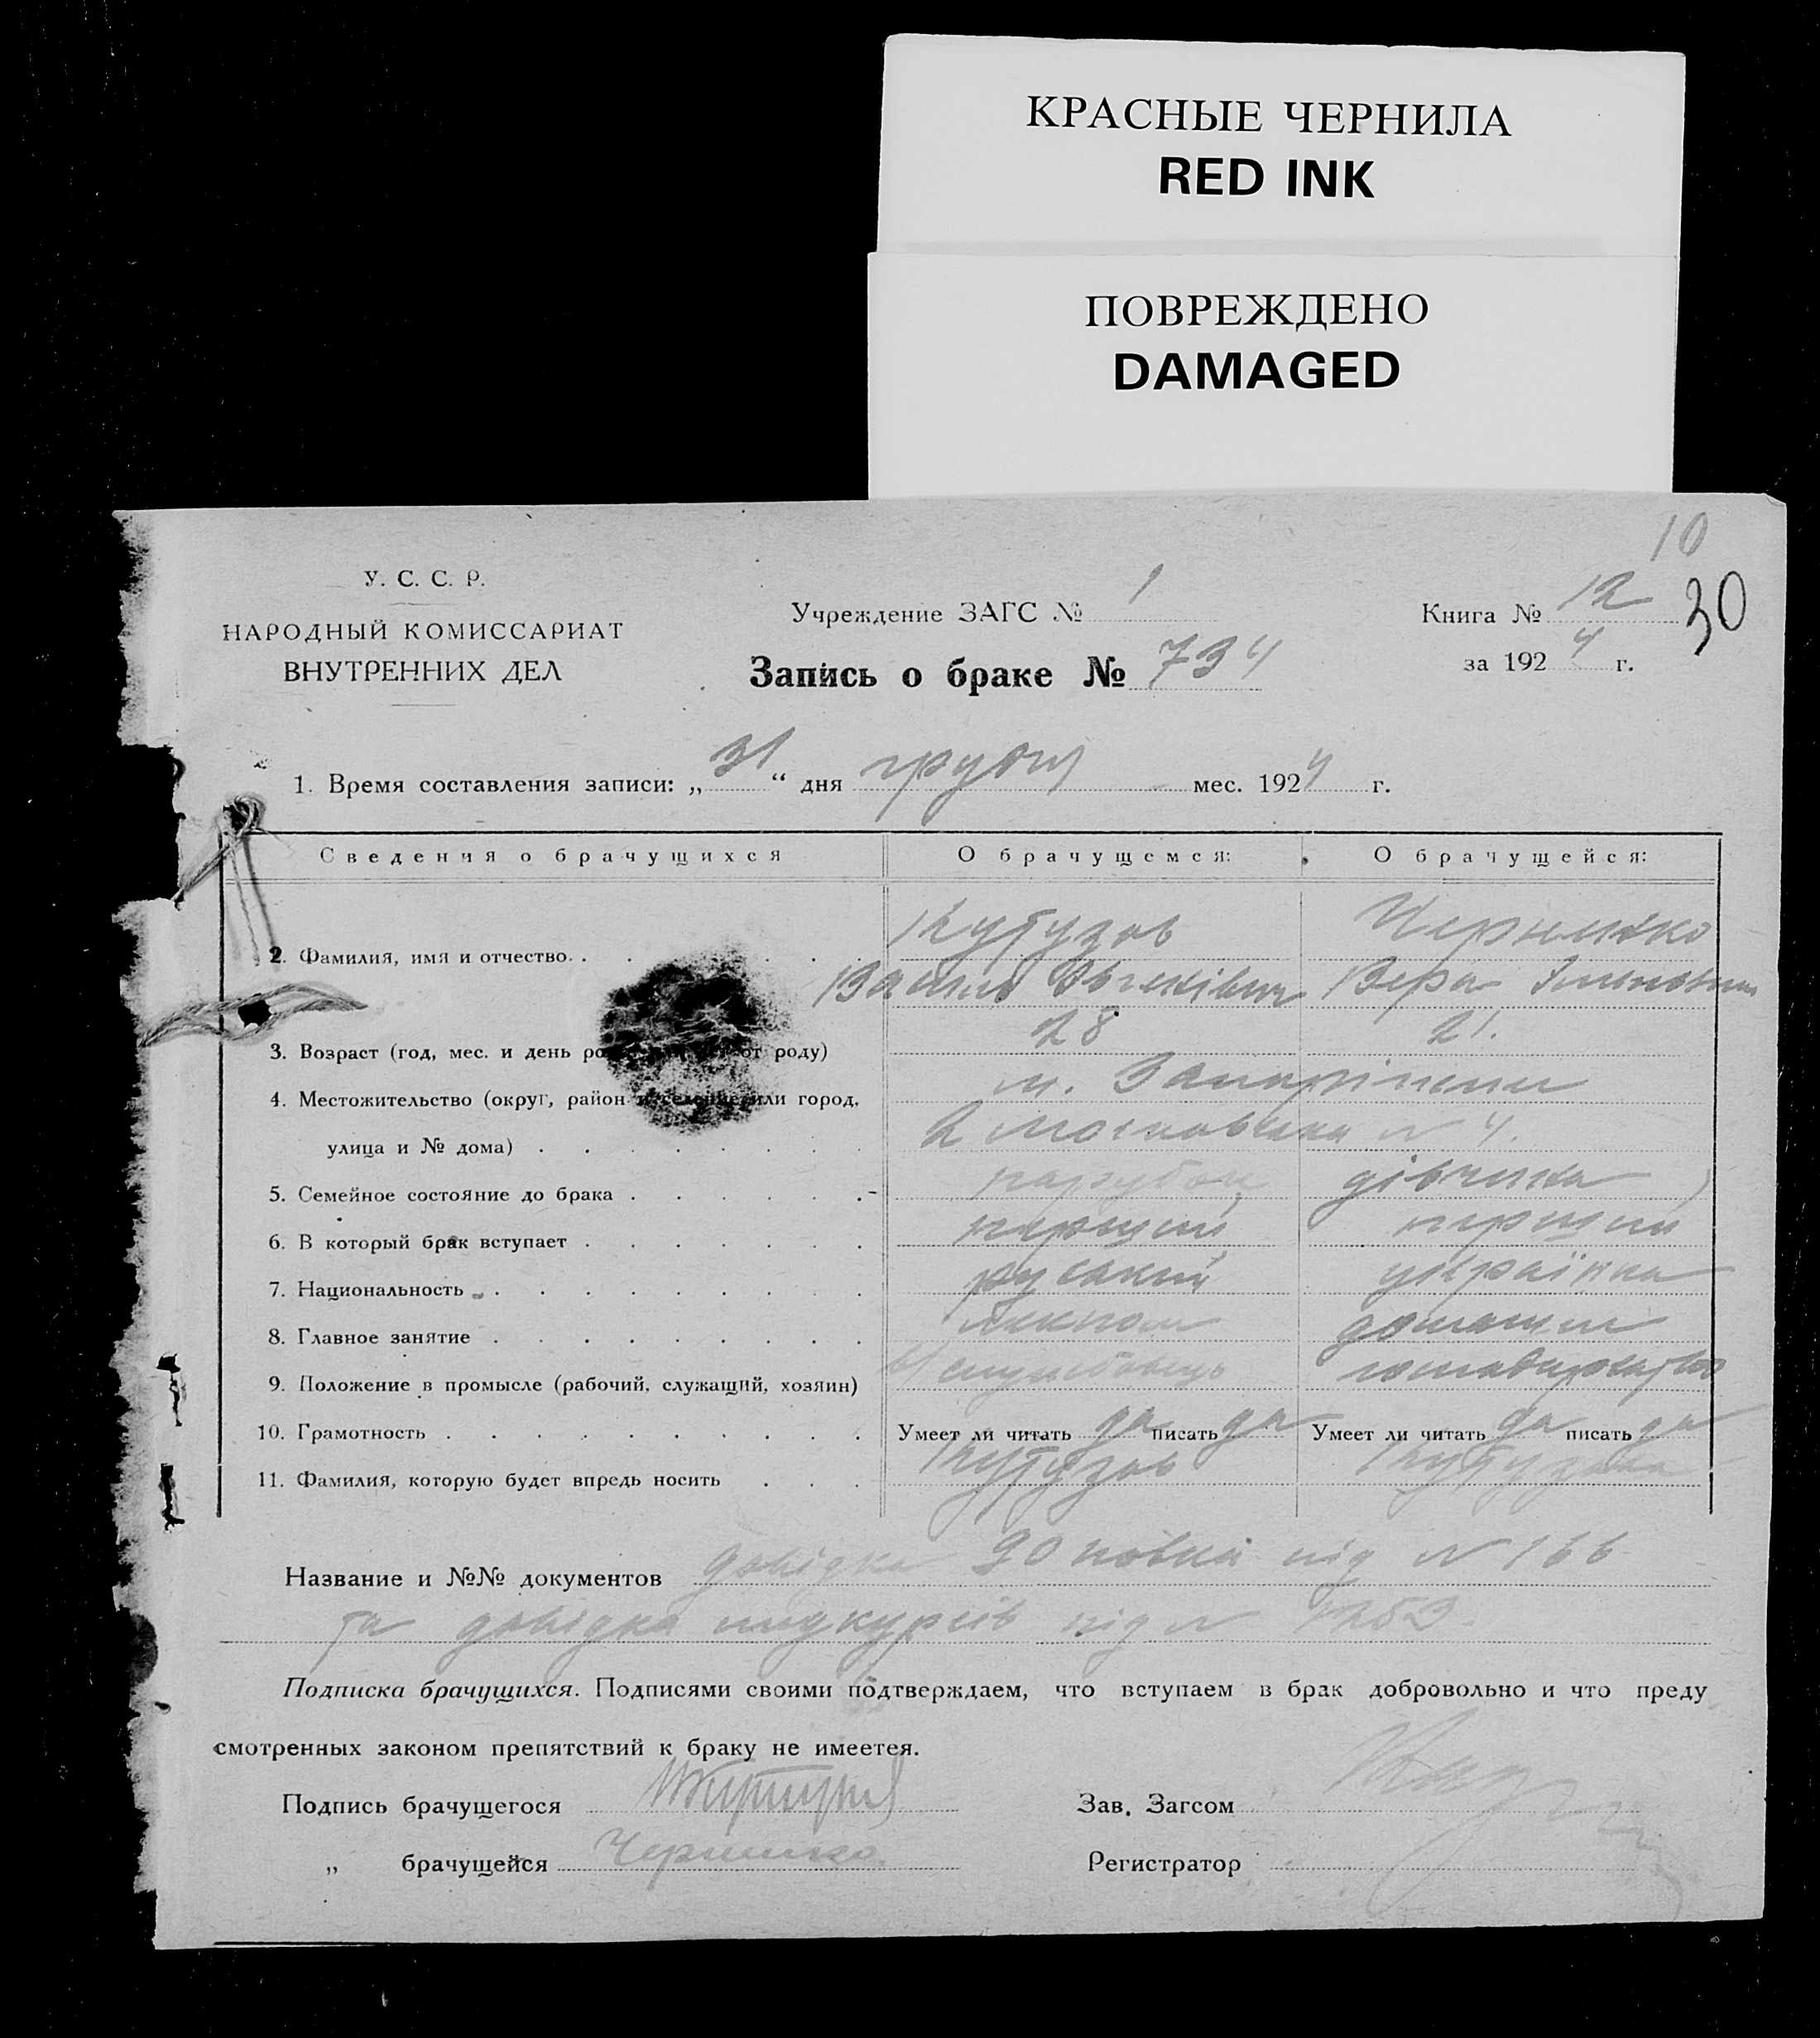 КРАСНЫЕ ЧЕРНИЛА
RED INK
ПОВРЕЖДЕНО
DAMAGED
10
У. С. С. Р.
НАРОДНЫЙ КОМИССАРИАТ
ВНУТРЕННИХ ДЕЛ
Учреждение ЗАГС № 1
Запись о браке № 734
Книга № 12 30
за 1924 г.
1. Время составления записи: „31“ дня грудня мес. 1924 г.
Сведения о брачущихся О брачущемся: О брачущейся:
Кутузов
2. Фамилия, имя и отчество Василь Вера
3. Возраст (год, мес. и день от роду) 28 21.
4. Местожительство (округ, район или город, м. Запоріжжя
улица и № дома) 2 Московська № 4.
5. Семейное состояние до брака парубок дівчина
6. В который брак вступает перший перший
7. Национальность руський українка
8. Главное занятие домашнє
9. Положение в промысле (рабочий, служащий, хозяин) службовець господарство
10. Грамотность Умеет ли читать да писать да Умеет ли читать да писать да
11. Фамилия, которую будет впредь носить Кутузов Кутузова
Название и №№ документов довідка 90 під № 166
та довідка під №
Подписка брачущихся. Подписями своими подтверждаем, что вступаем в брак добровольно и что преду
смотренных законом препятствий к браку не имеется.
Подпись брачущегося Зав. Загсом
„ брачущейся Регистратор